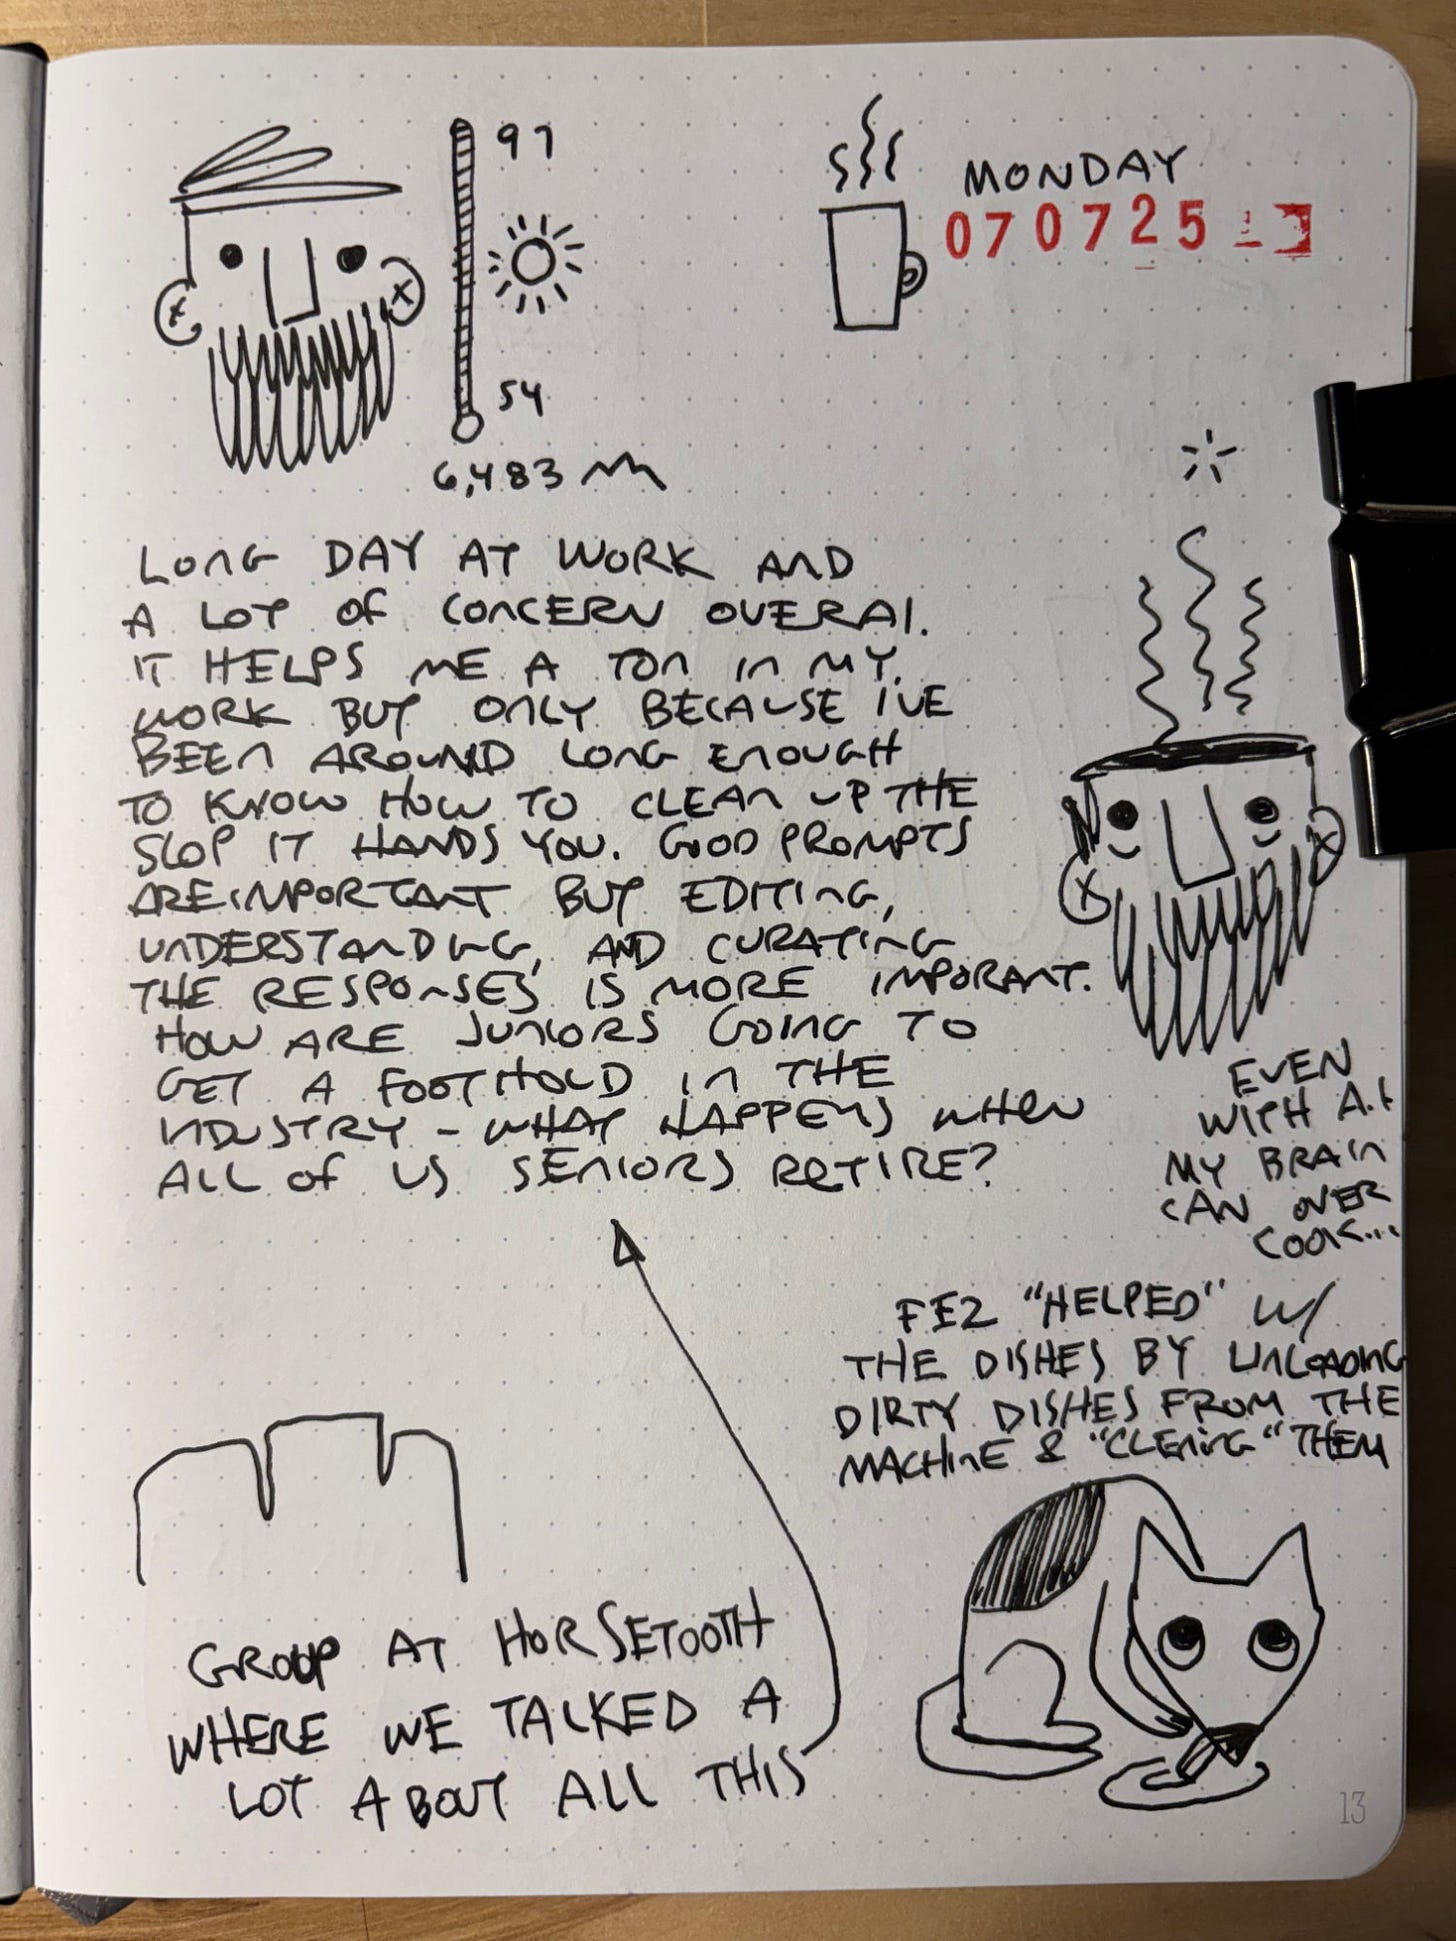 97
54
6,483
MONDAY
070725
LONG DAY AT WORK AND
A LOT OF CONCERN OVER AI.
IT HELPS ME A TON IN MY
WORK BUT ONLY BECAUSE I'VE
BEEN AROUND LONG ENOUGH
TO KNOW HOW TO CLEAN UP THE
SLOP IT HANDS YOU. GOOD PROMPTS
ARE IMPORTANT BUT EDITING,
UNDERSTANDING, AND CURATING
THE RESPONSES IS MORE IMPORANT.
HOW ARE JUNIORS GOING TO
GET A FOOTHOLD IN THE
INDUSTRY - WHAT HAPPENS WHEN
ALL OF US SENIORS RETIRE?
EVEN
WITH A.I
MY BRAIN
CAN OVER
COOK...
FEZ "HELPED" W/
THE DISHES BY UNLOADING
DIRTY DISHES FROM THE
MACHINE & "CLENING" THEM
GROUP AT HORSETOOTH
WHERE WE TALKED A
LOT ABOUT ALL THIS
13